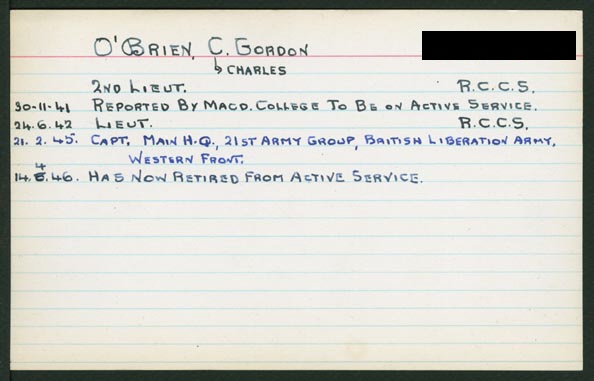 O'BRIEN, C. GORDON
↳ CHARLES
2ND LIEUT. R.C.C.S.
30-11-41 REPORTED BY MACD. COLLEGE TO BE ON ACTIVE SERVICE.
24.6.42 LIEUT. R.C.C.S.
21.2.45. CAPT. MAIN H.Q., 21ST ARMY GROUP, BRITISH LIBERATION ARMY,
WESTERN FRONT.
4
14.6.46. HAS NOW RETIRED FROM ACTIVE SERVICE.